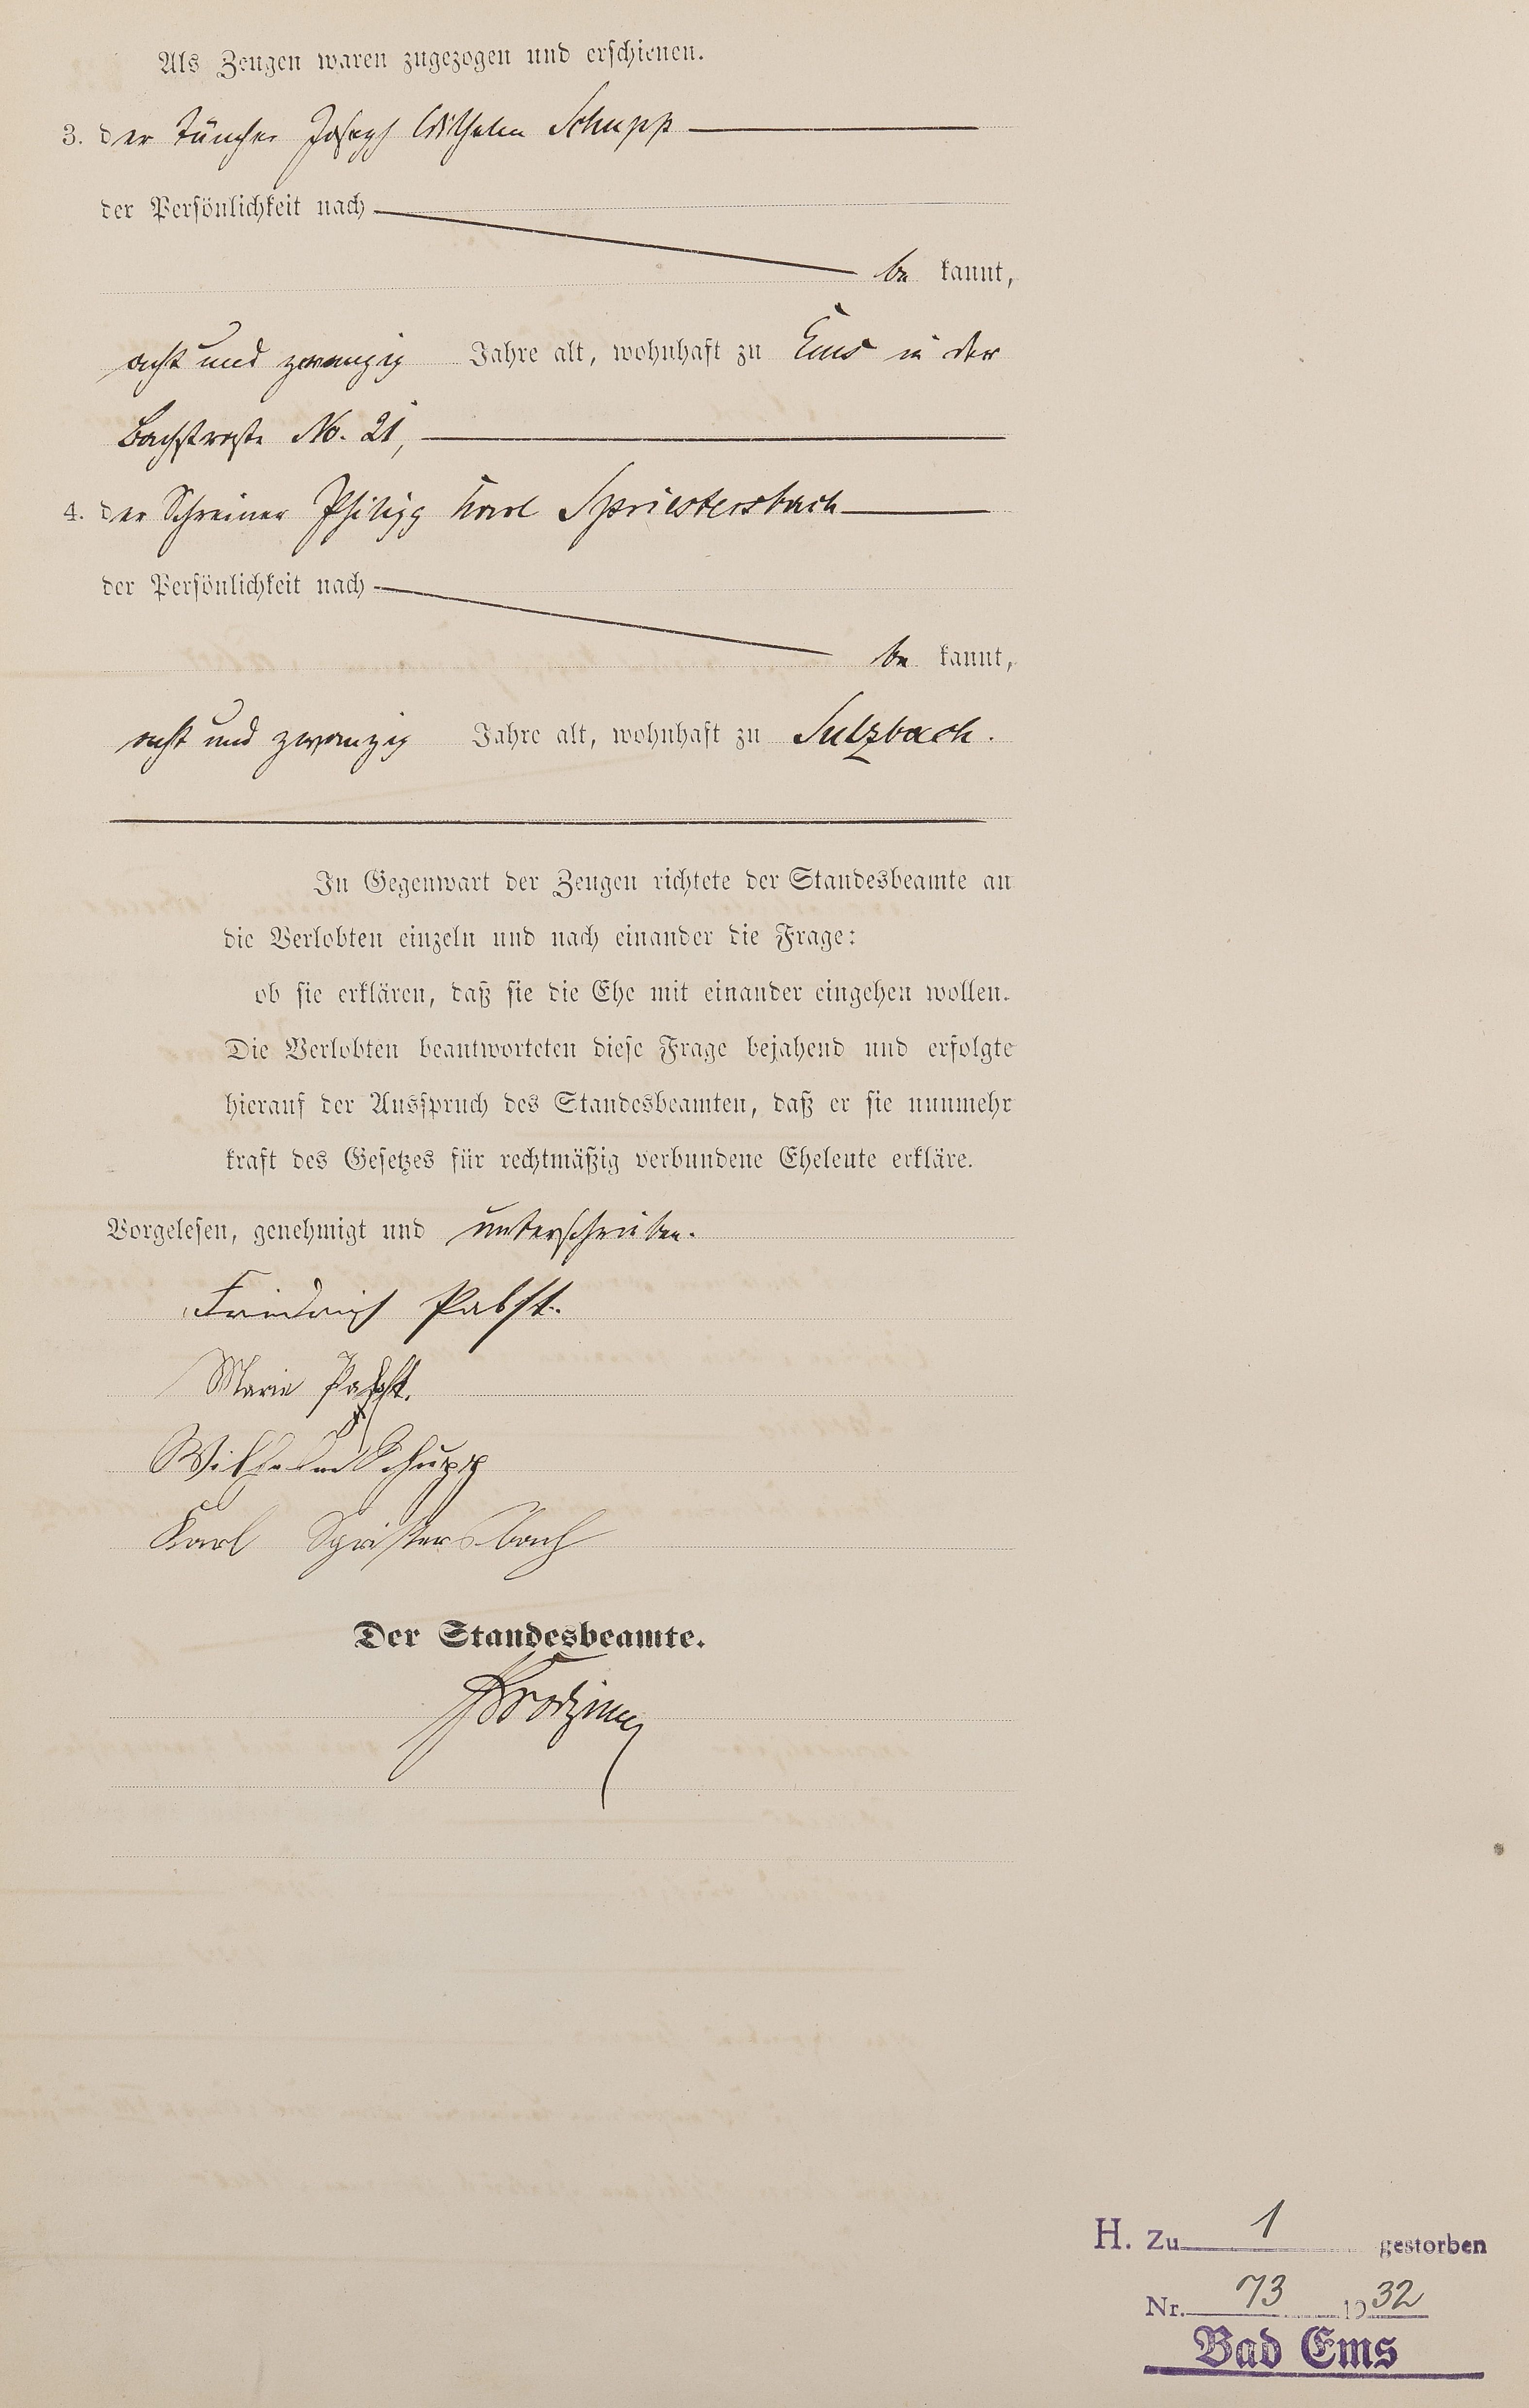 Als Zeugen waren zugezogen und erschienen.
3. der Tüncher Joseph Wilhelm Schupp
der Persönlichkeit nach
be kannt,
acht und zwanzig Jahre alt, wohnhaft zu Ems in der
Bachstraße No. 21,
4. der Schreiner Philipp Karl Spriestersbach
der Persönlichkeit nach
be kannt,
acht und zwanzig Jahre alt, wohnhaft zu Sulzbach.
In Gegenwart der Zeugen richtete der Standesbeamte an
die Verlobten einzeln und nach einander die Frage:
ob sie erklären, daß sie die Ehe mit einander eingehen wollen.
Die Verlobten beantworteten diese Frage bejahend und erfolgte
hierauf der Ausspruch des Standesbeamten, daß er sie nunmehr
kraft des Gesetzes für rechtmäßig verbundene Eheleute erkläre.
Vorgelesen, genehmigt und unterschrieben.
Friedrich Pabst.
Marie Pabst.
Wilhelm Schupp
Karl Spristersbach
Der Standesbeamte.
H. Zu 1 gestorben
Nr. 73 1932
Bad Ems